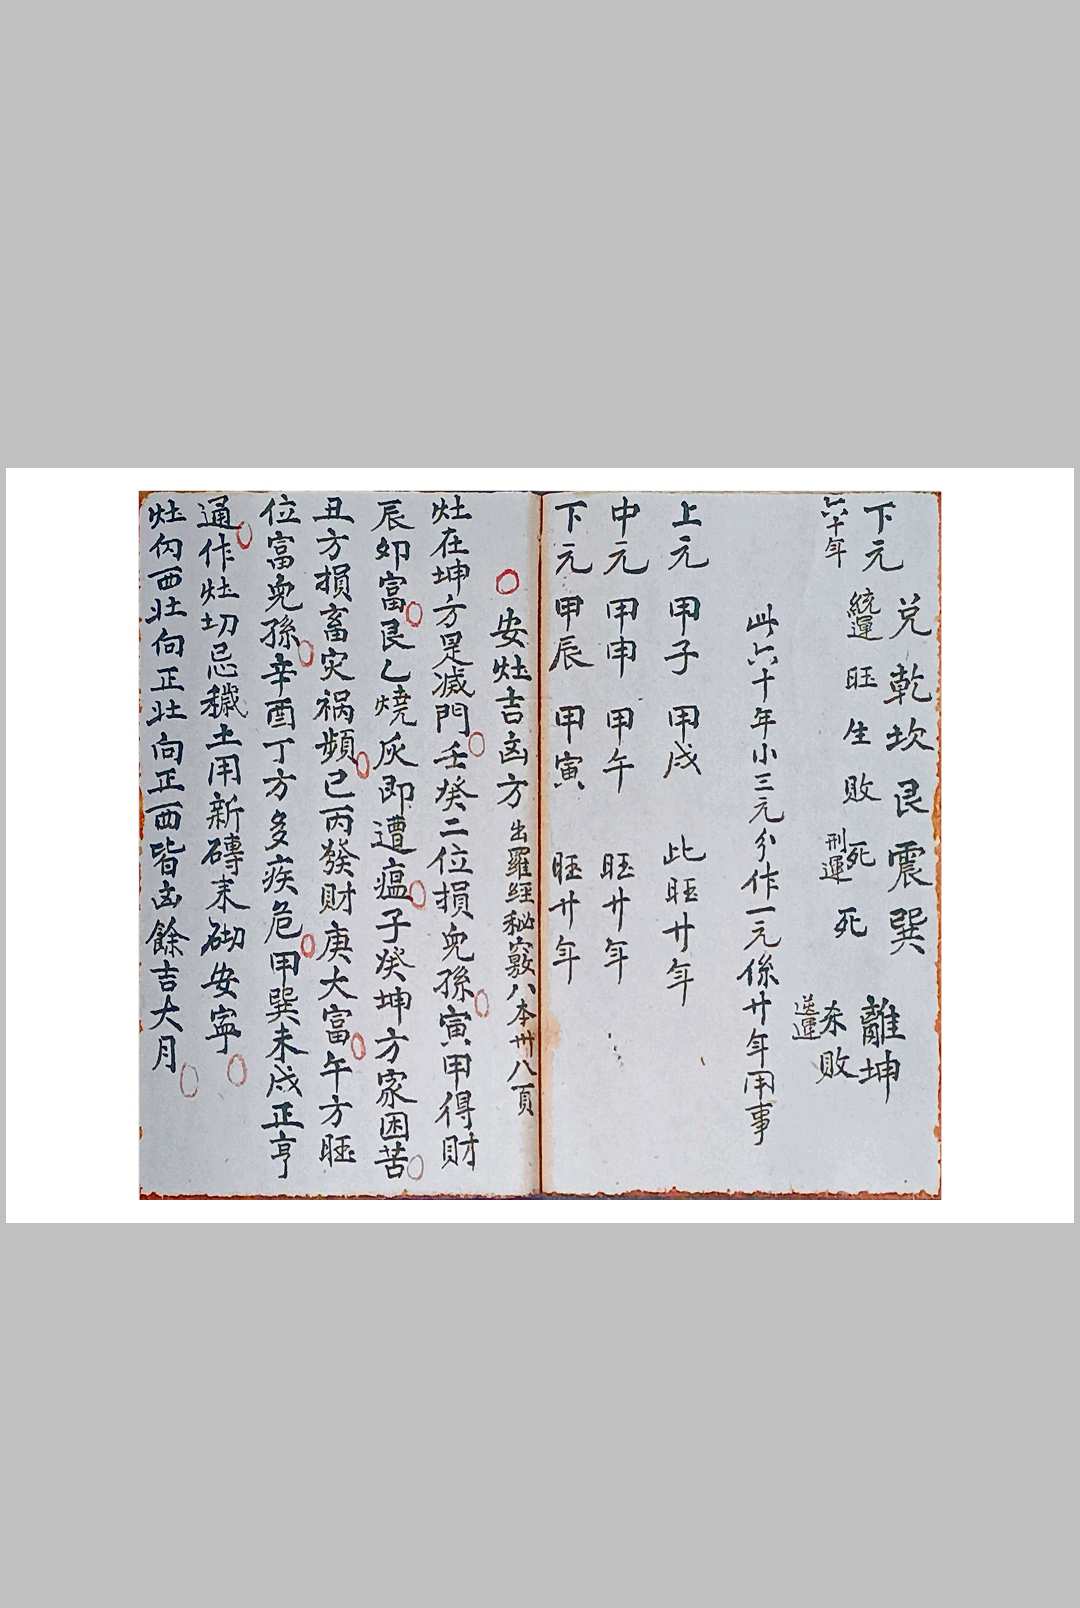 下元 兌乾坎艮震巽 離坤
六十年 統運 旺生敗死 刑運 死 敗 運
此六十年小三元分作一元係廿年用事
上元 甲子 甲戌 此旺廿年
中元 甲申 甲午 旺廿年
下元 甲辰 甲寅 旺廿年
安灶吉凶方 出羅經秘竅八本卅八頁
灶在坤方是滅門壬癸二位損兒孫寅甲得財
辰卯富艮乙燒灰即遭瘟子癸坤方家困苦
丑方損畜災禍頻巳丙發財庚大富午方旺
位富兒孫辛酉丁方多疾危甲巽未戌正亨
通作灶切忌穢土用新磚未砌安寧
灶向西北向正北向正西皆凶餘吉大月